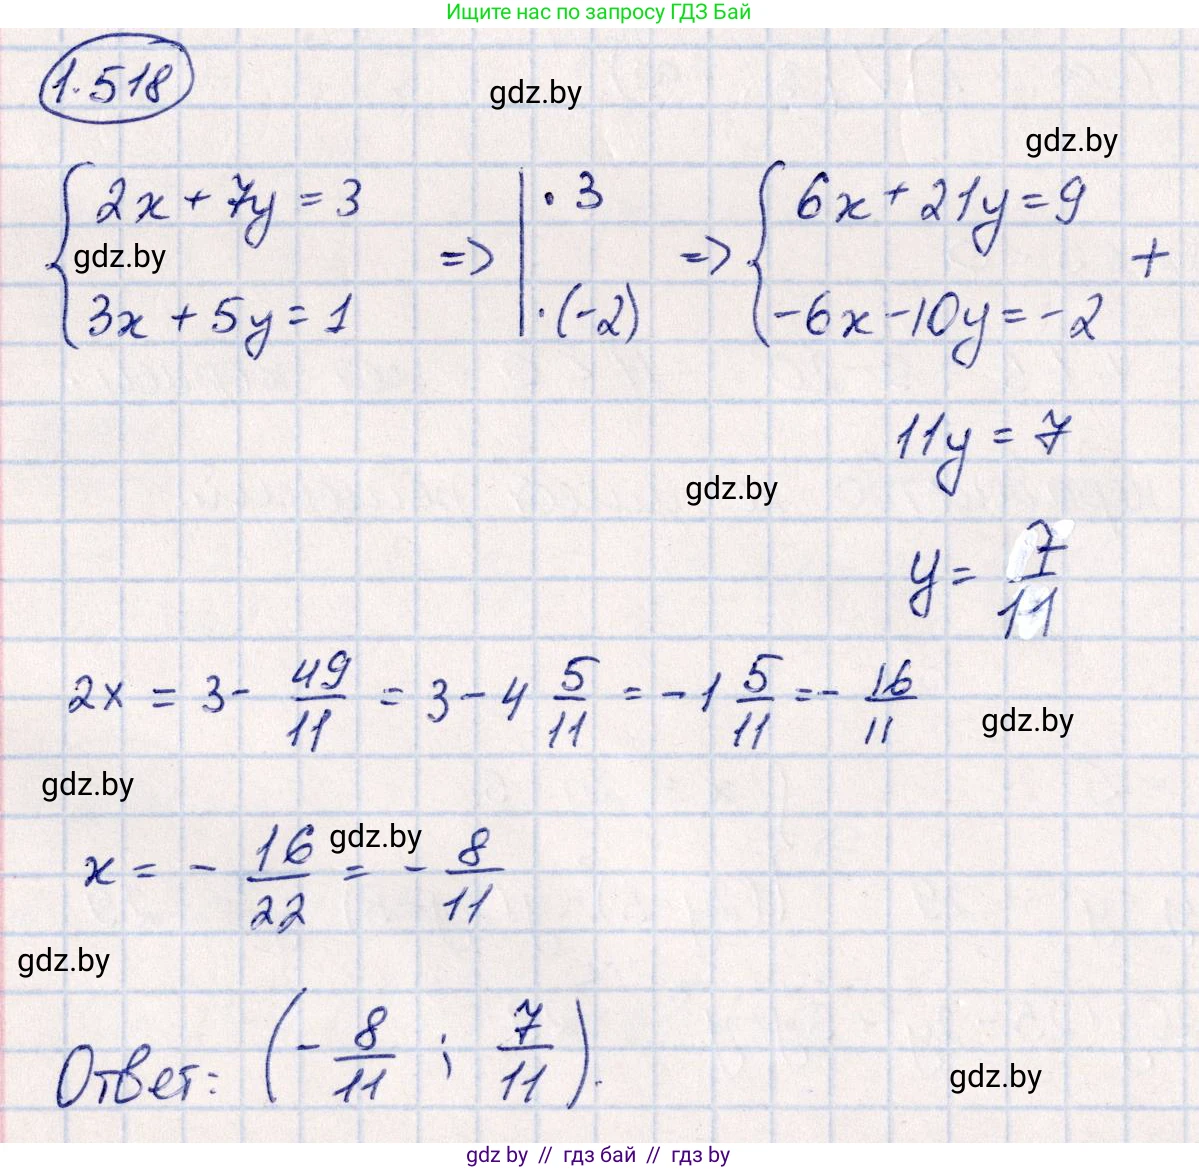 Ищите нас по запросу ГДЗ Бай
1.518
gdz.by
gdz.by
{ 2x + 7y = 3 => | · 3 => { 6x + 21y = 9
gdz.by
3x + 5y = 1 · (-2) -6x - 10y = -2 +
11y = 7
gdz.by
y = 7/11
2x = 3 - 49/11 = 3 - 4 5/11 = -1 5/11 = - 16/11
gdz.by
gdz.by
gdz.by
x = - 16/22 = - 8/11
gdz.by
Ответ: (- 8/11 ; 7/11).
gdz.by
gdz by // гдз бай // гдз by